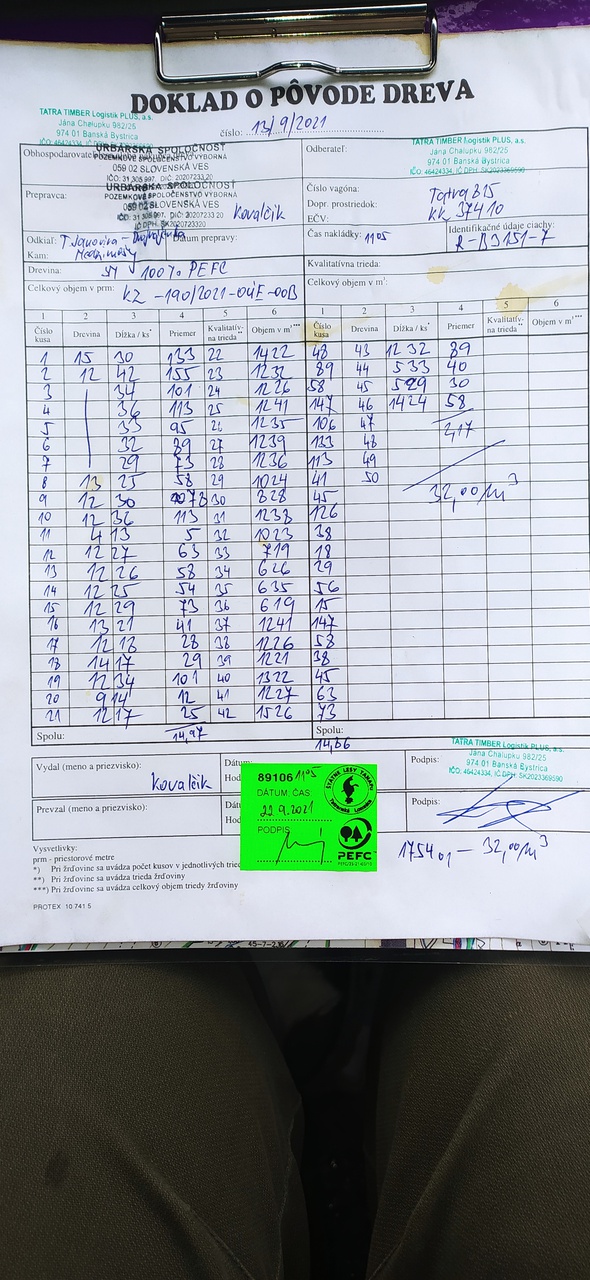 DOKLAD O PÔVODE DREVA
číslo: 13/9/2021
TATRA TIMBER Logistik PLUS, a.s.
Jána Chalupku 982/25
974 01 Banská Bystrica
IČO: 46424334, IČ DPH
Obhospodarovateľ
URBÁRSKA SPOLOČNOSŤ
POZEMKOVÉ SPOLOČENSTVO VÝBORNÁ
059 02 SLOVENSKÁ VES
IČO: 31 305 997, DIČ: 20207233 20
Odberateľ:
TATRA TIMBER Logistik PLUS, a.s.
Jána Chalupku 982/25
974 01 Banská Bystrica
IČO: 46424334, IČ DPH: SK2023369590
Prepravca:
URBÁRSKA SPOLOČNOSŤ
POZEMKOVÉ SPOLOČENSTVO VÝBORNÁ
059 02 SLOVENSKÁ VES
Kovalčik
Číslo vagóna:
Dopr. prostriedok: Tatra 815
EČV: KK 37410
Odkiaľ:
Kam:
Dátum prepravy:
Čas nakládky: 11 05
Identifikačné údaje ciachy:
R-BJ151-7
Drevina: SM 100% PEFC
Kvalitatívna trieda:
Celkový objem v prm: KZ -190/2021-04E-00B
Celkový objem v m³:
1 2 3 4 5 6 1 2 3 4 5 6
Číslo kusa Drevina Dĺžka / ks* Priemer Kvalitatív- na trieda** Objem v m³*** Číslo kusa Drevina Dĺžka / ks* Priemer Kvalitatív- na trieda** Objem v m³***
1 15 30 133 22 1422 48 43 1232 89
2 12 42 155 23 1232 89 44 533 40
3 34 101 24 1226 58 45 529 30
4 36 113 25 1241 147 46 1424 58
5 33 95 26 1235 106 47 2,17
6 32 89 27 1239 133 48
7 29 73 28 1236 113 49
8 13 25 58 29 1024 41 50
9 12 30 78 30 828 45 32,00/m³
10 12 36 113 31 1238 126
11 4 13 5 32 1023 38
12 12 27 63 33 719 18
13 12 26 58 34 626 29
14 12 25 54 35 635 56
15 12 29 73 36 619 15
16 13 21 41 37 1241 147
17 12 18 28 38 1226 58
18 14 17 29 39 1221 38
19 12 34 101 40 1322 45
20 9 14 12 41 1227 63
21 12 17 25 42 1526 73
Spolu: 14,97 Spolu: 14,86
Vydal (meno a priezvisko): Kovalčik
Dátum:
Hod
Podpis:
TATRA TIMBER Logistik PLUS, a.s.
Jána Chalupku 982/25
974 01 Banská Bystrica
IČO: 46424334, IČ DPH: SK2023369590
Prevzal (meno a priezvisko):
Hod
Podpis:
89106 11 05
DÁTUM: ČAS:
22.9.2021
PODPIS
ŠTÁTNE LESY TANAPU
Tatranská Lomnica
PEFC
175401 – 32,00/m³
Vysvetlivky:
prm - priestorové metre
*) Pri žrďovine sa uvádza počet kusov v jednotlivých
**) Pri žrďovine sa uvádza trieda žrďoviny
***) Pri žrďovine sa uvádza celkový objem triedy žrďoviny
PROTEX 10 741 5